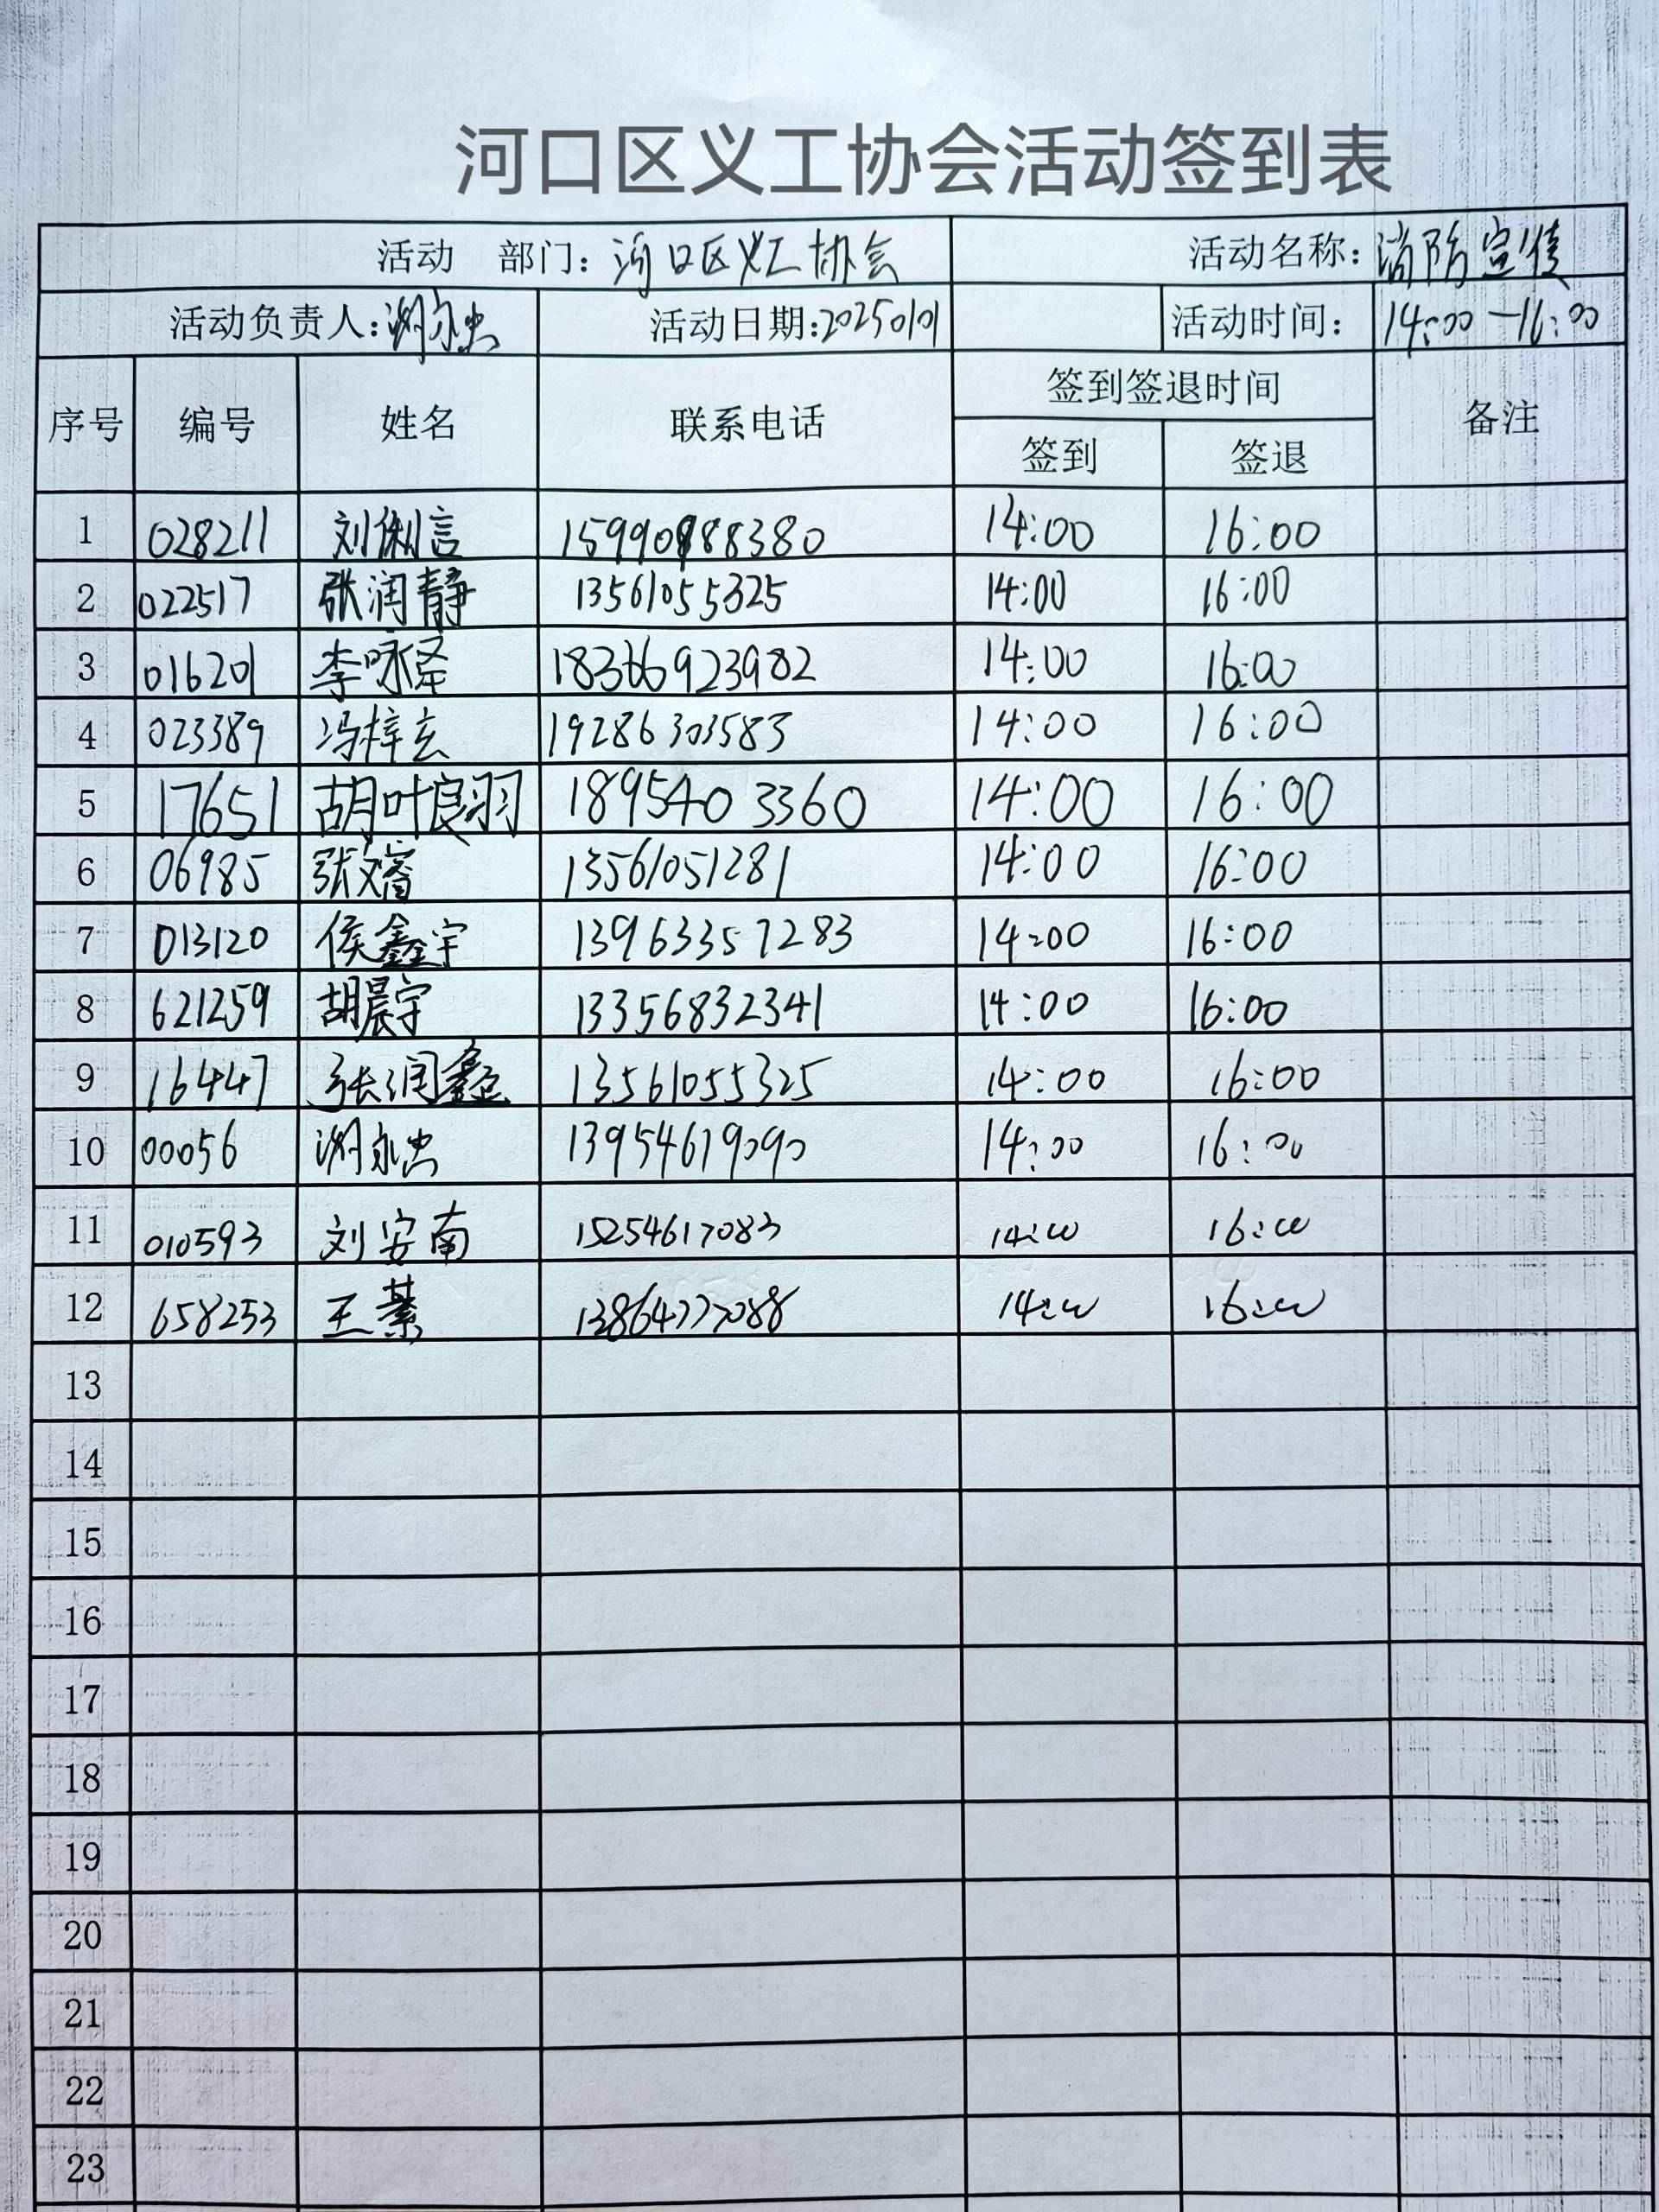 河口区义工协会活动签到表
活动 部门：河口区义工协会 活动名称：消防宣传
活动负责人： 活动日期：20250101 活动时间：14:00—16:00
序号 编号 姓名 联系电话 签到签退时间 备注
签到 签退
1 028211 14:00 16:00
2 022517 张润静 13561055325 14:00 16:00
3 016201 李咏泽 18366923982 14:00 16:00
4 023389 冯梓玄 19286303583 14:00 16:00
5 17651 胡叶良羽 1895403360 14:00 16:00
6 06985 张文睿 13561051281 14:00 16:00
7 013120 侯鑫宇 13963357283 14:00 16:00
8 621259 胡晨宇 13356832341 14:00 16:00
9 16447 张润鑫 13561055325 14:00 16:00
10 00056 13954619090 14:00 16:00
11 010593 刘安南 15254617083 14:00 16:00
12 658253 王綦 13864777088 14:00 16:00
13
14
15
16
17
18
19
20
21
22
23